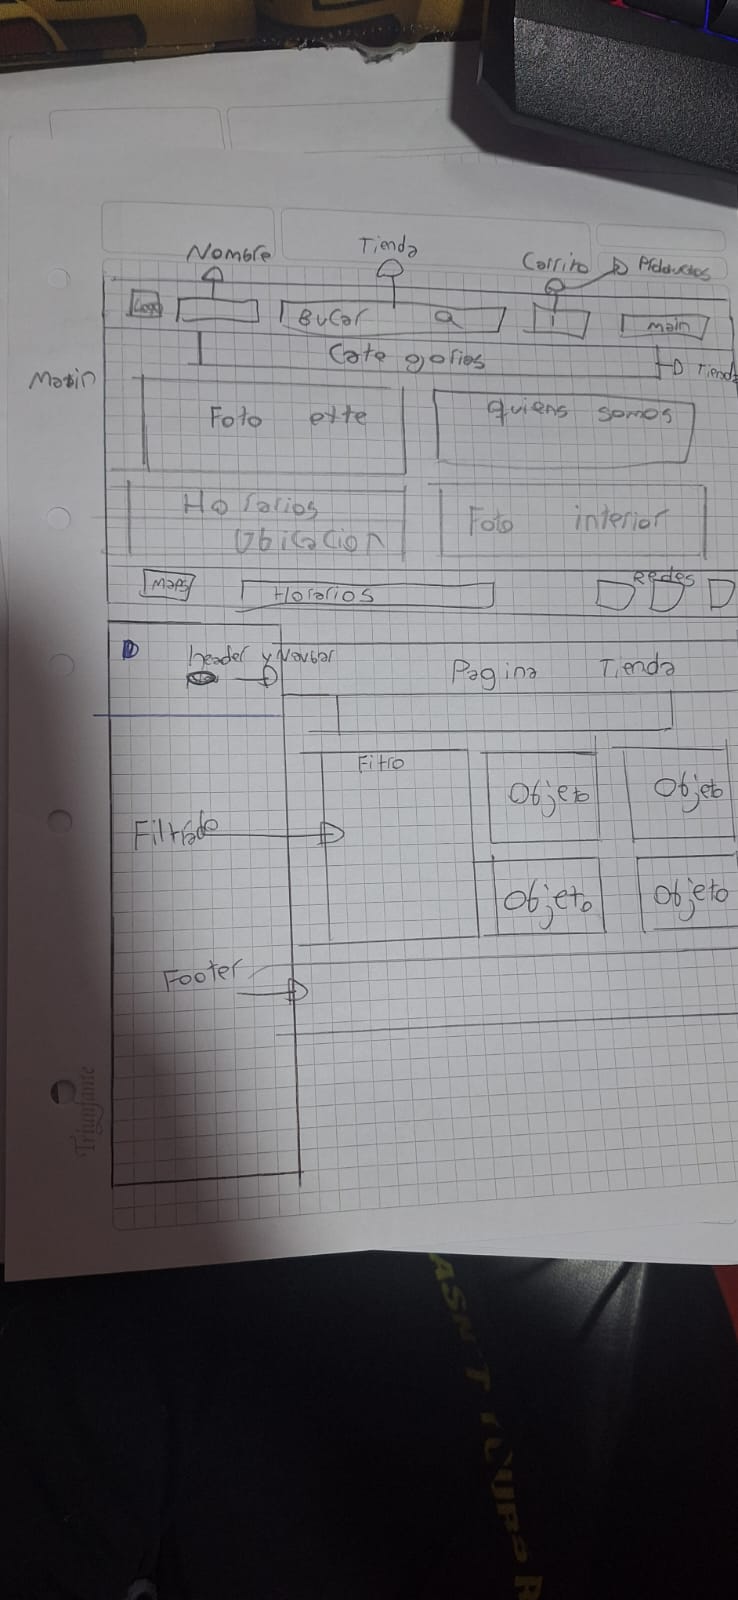 Nombre Tienda Carrito Productos
Logo Bucar Q 1 main
Cate gorias Tienda
Foto quiens somos
Horarios Foto interior
Ubicacion
Maps Horarios Redes
header y Navbar Pagina Tienda
Fitro Objeto Objeto
Filtrado
Objeto Objeto
Footer
Triunfante